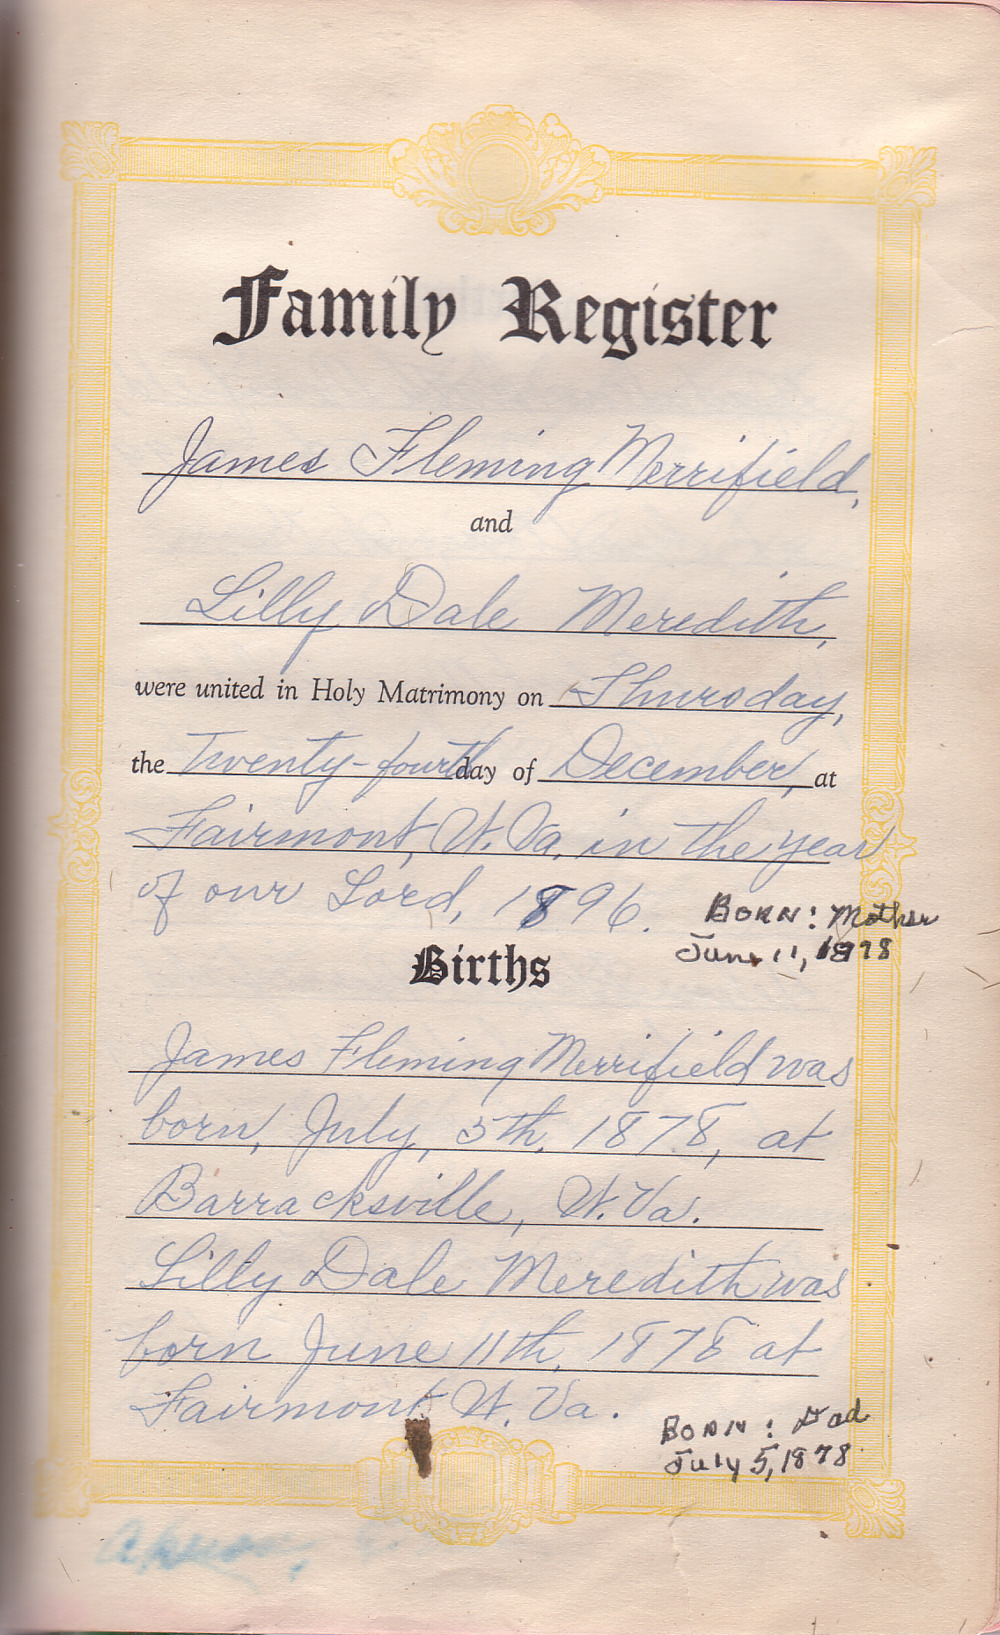 Family Register
James Fleming Merrifield,
and
Lilly Dale Meredith,
were united in Holy Matrimony on Thursday,
the Twenty-fourth day of December, at
Fairmont, W. Va. in the year
of our Lord, 1896.
Born: Mother
June 11, 1878
Births
James Fleming Merrifield was
born, July, 5th, 1878, at
Barracksville, W. Va.
Lilly Dale Meredith was
born June 11th, 1878 at
Fairmont W. Va.
Born: Dad
July 5, 1878